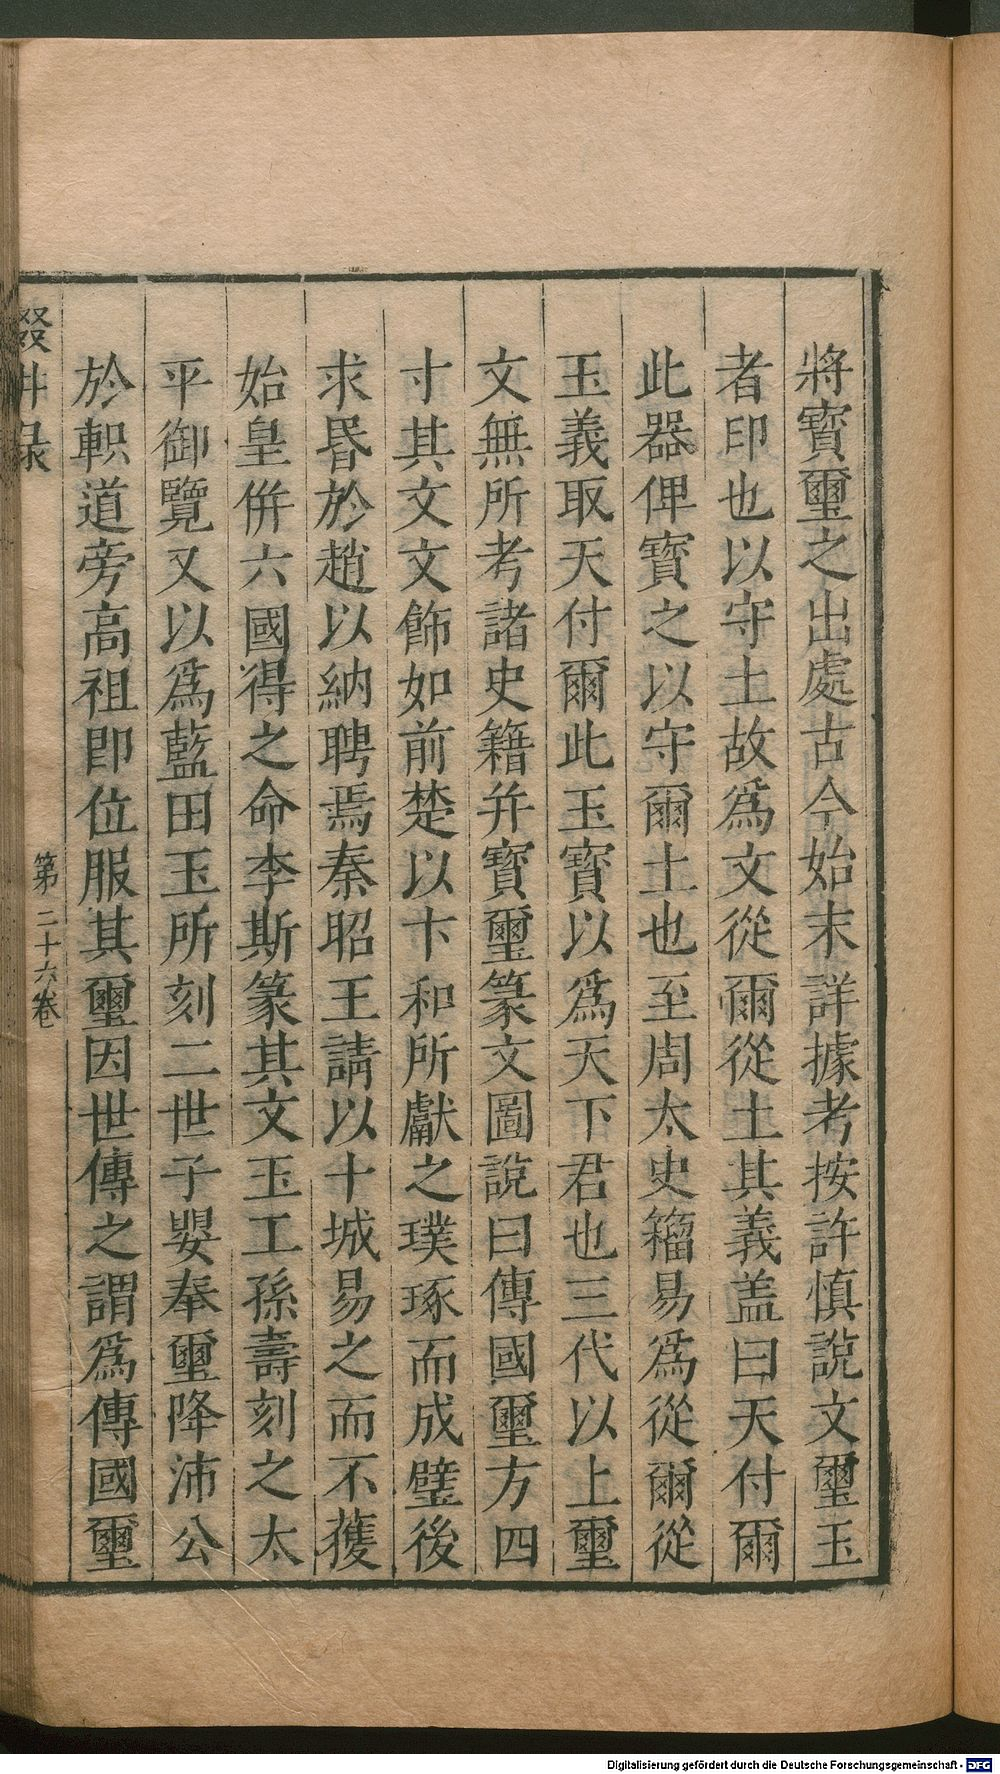 將寶璽之出處古今始末詳據考按許慎說文璽玉
者印也以守土故爲文從爾從土其義盖曰天付爾
此器俾寶之以守爾土也至周太史籀易爲從爾從
玉義取天付爾此玉寶以爲天下君也三代以上璽
文無所考諸史籍并寶璽篆文圖說曰傳國璽方四
寸其文文飾如前楚以卞和所獻之璞琢而成璧後
求昏於趙以納聘焉秦昭王請以十城易之而不獲
始皇併六國得之命李斯篆其文玉工孫壽刻之太
平御覽又以爲藍田玉所刻二世子嬰奉璽降沛公
於軹道旁高祖即位服其璽因世傳之謂爲傳國璽
第二十六卷
Digitalisierung gefördert durch die Deutsche Forschungsgemeinschaft - DFG